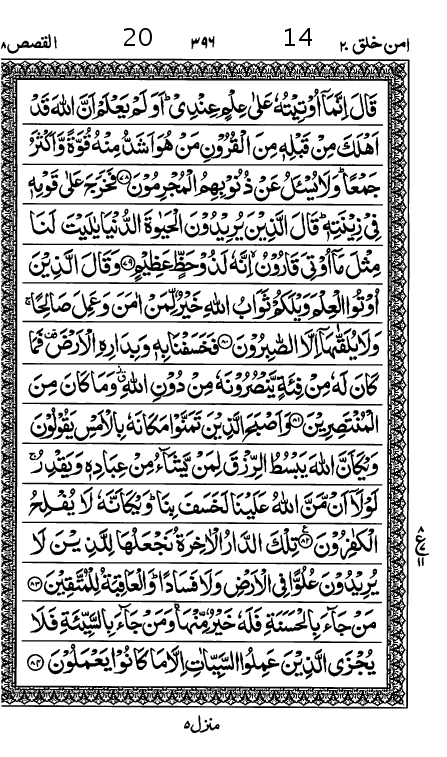 القصص ٢٨ 20 ٣٩٦ 14 امن خلق ٢٠
قَالَ اِنَّمَاۤ اُوْتِیْتُهٗ عَلٰی عِلْمٍ عِنْدِیْ ؕ اَوَ لَمْ یَعْلَمْ اَنَّ اللّٰهَ قَدْ
اَهْلَكَ مِنْ قَبْلِهٖ مِنَ الْقُرُوْنِ مَنْ هُوَ اَشَدُّ مِنْهُ قُوَّةً وَّ اَكْثَرُ
جَمْعًا ؕ وَ لَا یُسْـَٔلُ عَنْ ذُنُوْبِهِمُ الْمُجْرِمُوْنَ ﴿۷۸﴾ فَخَرَجَ عَلٰی قَوْمِهٖ
فِیْ زِیْنَتِهٖ ؕ قَالَ الَّذِیْنَ یُرِیْدُوْنَ الْحَیٰوةَ الدُّنْیَا یٰلَیْتَ لَنَا
مِثْلَ مَاۤ اُوْتِیَ قَارُوْنُ ۙ اِنَّهٗ لَذُوْ حَظٍّ عَظِیْمٍ ﴿۷۹﴾ وَ قَالَ الَّذِیْنَ
اُوْتُوا الْعِلْمَ وَیْلَكُمْ ثَوَابُ اللّٰهِ خَیْرٌ لِّمَنْ اٰمَنَ وَ عَمِلَ صَالِحًا ۚ
وَ لَا یُلَقّٰىهَاۤ اِلَّا الصّٰبِرُوْنَ ﴿۸۰﴾ فَخَسَفْنَا بِهٖ وَ بِدَارِهِ الْاَرْضَ ۫ فَمَا
كَانَ لَهٗ مِنْ فِئَةٍ یَّنْصُرُوْنَهٗ مِنْ دُوْنِ اللّٰهِ ۗ وَ مَا كَانَ مِنَ
الْمُنْتَصِرِیْنَ ﴿۸۱﴾ وَ اَصْبَحَ الَّذِیْنَ تَمَنَّوْا مَكَانَهٗ بِالْاَمْسِ یَقُوْلُوْنَ
وَیْكَاَنَّ اللّٰهَ یَبْسُطُ الرِّزْقَ لِمَنْ یَّشَآءُ مِنْ عِبَادِهٖ وَ یَقْدِرُ ۚ
لَوْ لَاۤ اَنْ مَّنَّ اللّٰهُ عَلَیْنَا لَخَسَفَ بِنَا ؕ وَیْكَاَنَّهٗ لَا یُفْلِحُ
الْكٰفِرُوْنَ ﴿۸۲﴾ تِلْكَ الدَّارُ الْاٰخِرَةُ نَجْعَلُهَا لِلَّذِیْنَ لَا
یُرِیْدُوْنَ عُلُوًّا فِی الْاَرْضِ وَ لَا فَسَادًا ؕ وَ الْعَاقِبَةُ لِلْمُتَّقِیْنَ ﴿۸۳﴾
مَنْ جَآءَ بِالْحَسَنَةِ فَلَهٗ خَیْرٌ مِّنْهَا ۚ وَ مَنْ جَآءَ بِالسَّیِّئَةِ فَلَا
یُجْزَی الَّذِیْنَ عَمِلُوا السَّیِّاٰتِ اِلَّا مَا كَانُوْا یَعْمَلُوْنَ ﴿۸۴﴾
۸ ع ۷ ۱۱
منزل ۵